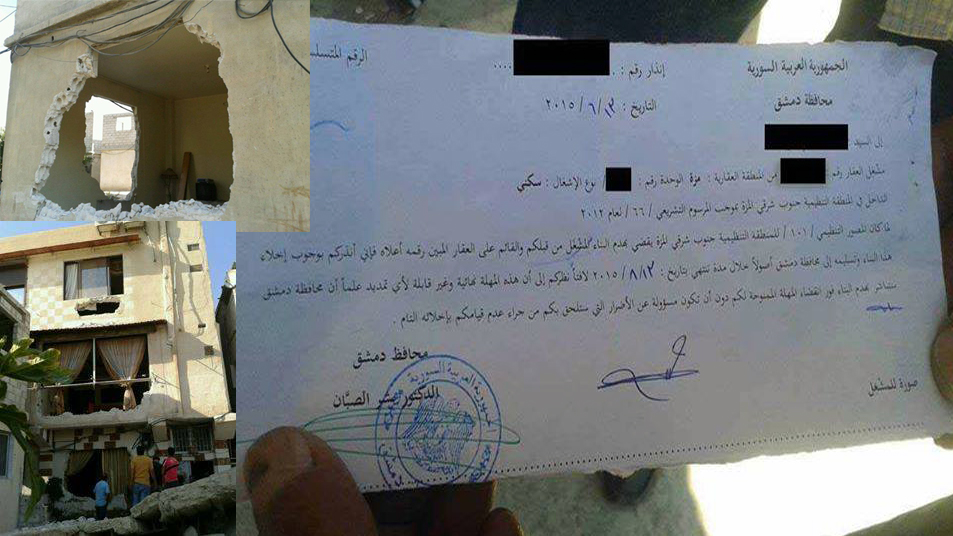 الجمهورية العربية السورية
محافظة دمشق
إنذار رقم :
التاريخ : ١٣ / ٦ / ٢٠١٥
الرقم المتسلسل
إلى السيد
مشغل العقار رقم : من المنطقة العقارية : مزة الوحدة رقم : / نوع الإشغال : سكني
الداخل في المنطقة التنظيمية جنوب شرقي المزة بموجب المرسوم التشريعي / ٦٦ / لعام ٢٠١٢
لما كان المصور التنظيمي / ١٠١ / للمنطقة التنظيمية جنوب شرقي المزة يقضي بهدم البناء المشغل من قبلكم والقائم على العقار المبين رقمه أعلاه فإني أنذركم بوجوب إخلاء
هذا البناء وتسليمه إلى محافظة دمشق أصولاً خلال مدة تنتهي بتاريخ : ١٣ / ٨ / ٢٠١٥ لافتاً نظركم إلى أن هذه المهلة نهائية وغير قابلة لأي تمديد علماً أن محافظة دمشق
ستباشر بهدم البناء فور انقضاء المهلة الممنوحة لكم دون أن تكون مسؤولة عن الأضرار التي ستلحق بكم من جراء عدم قيامكم بإخلائه التام .
محافظ دمشق
الدكتور بشر الصبَّان
صورة للمشغل
الجمهورية العربية السورية